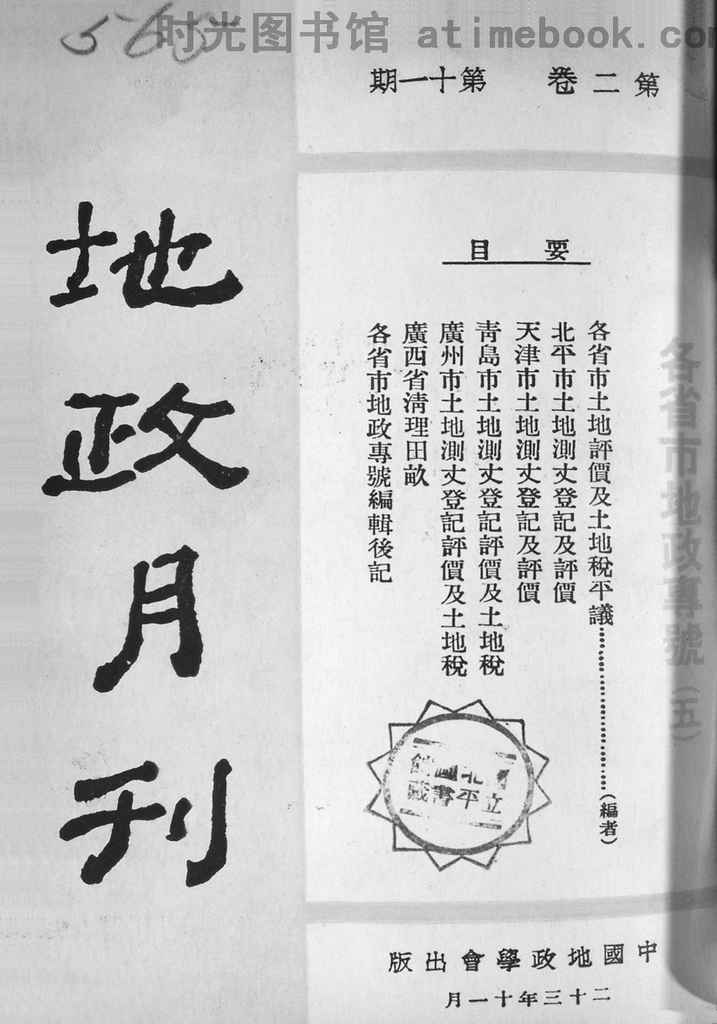 时光图书馆 atimebook.com
560
第二卷 第十一期
地政月刊
各省市地政專號（五）
要目
各省市土地評價及土地稅平議……………………（編者）
北平市土地測丈登記及評價
天津市土地測丈登記及評價
靑島市土地測丈登記評價及土地稅
廣州市土地測丈登記評價及土地稅
廣西省淸理田畝
各省市地政專號編輯後記
國立北平圖書館藏
中國地政學會出版
二十三年十一月